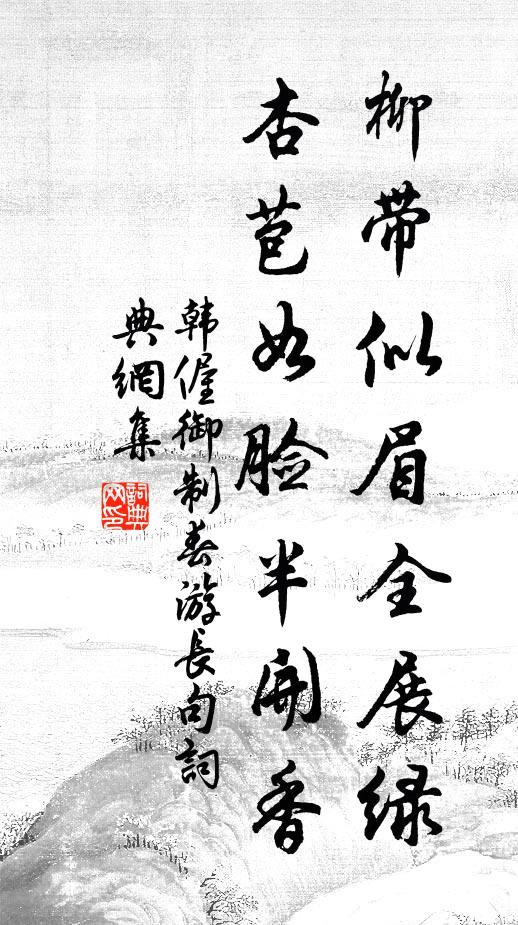 柳带似眉全展绿
杏苞如脸半开香
韩偓御制春游长句詞
典網集
詞典
网印